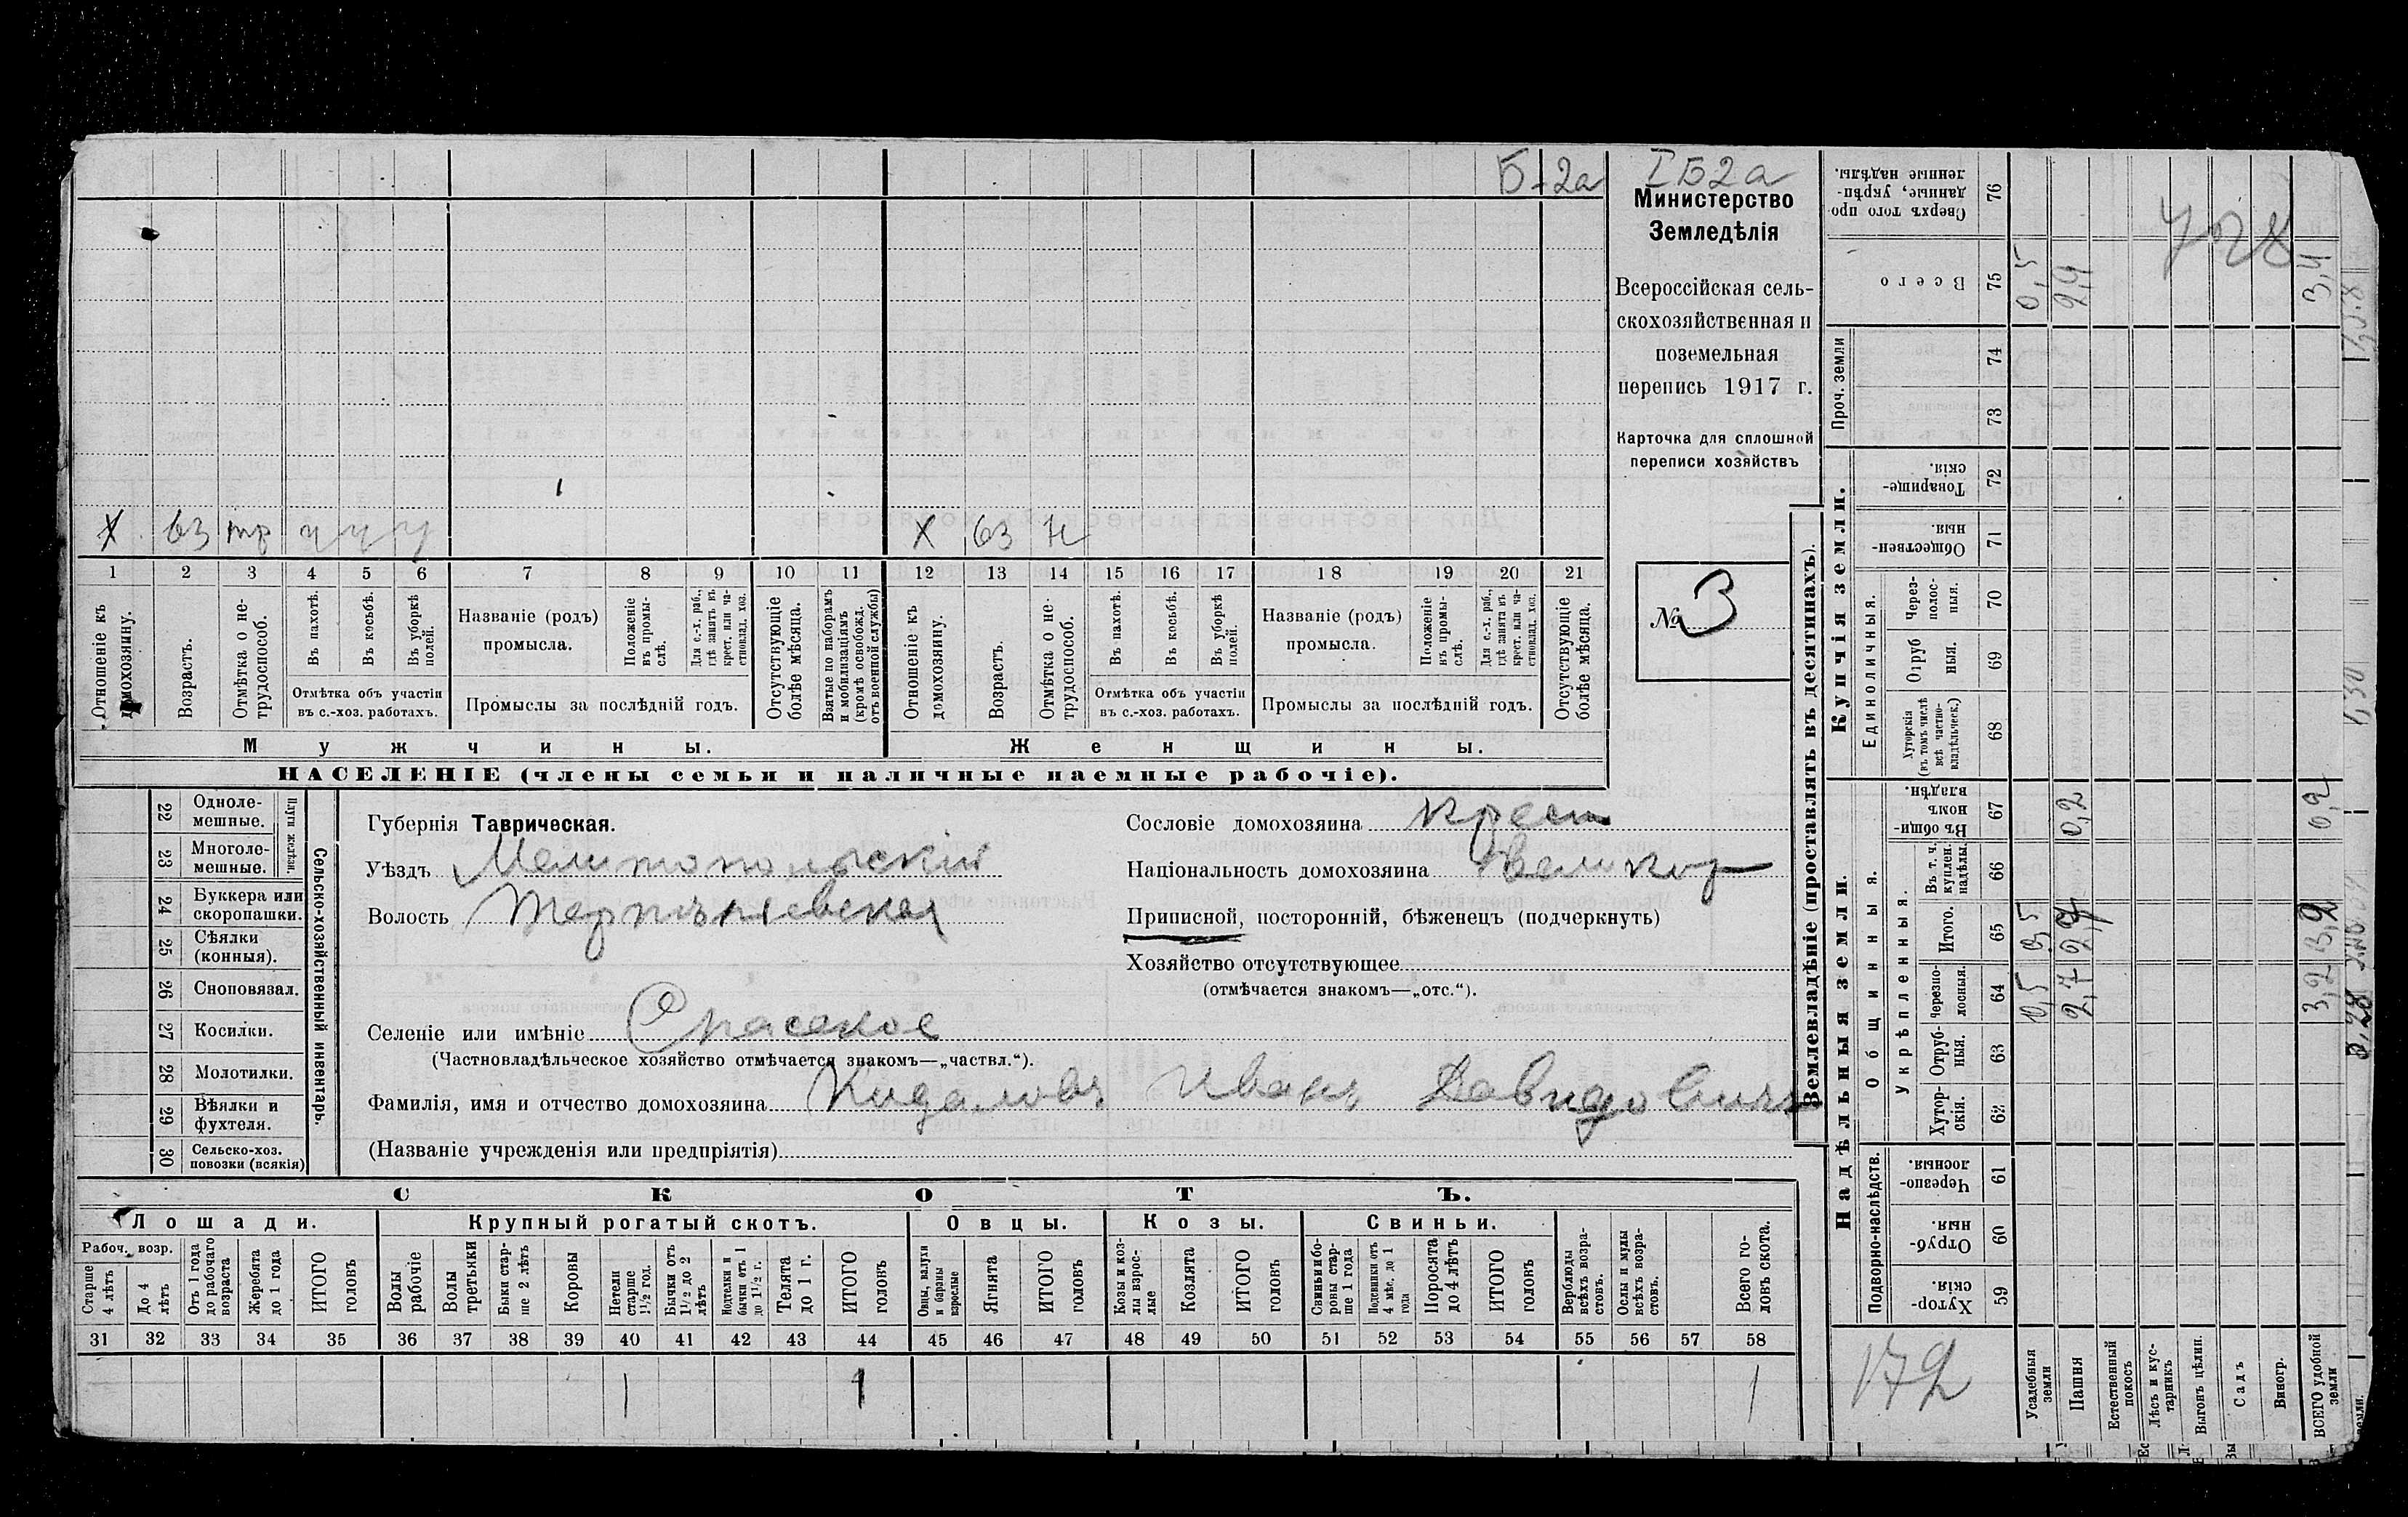 Б-2а
Х 63 тр ч ч у Х 63 н
1 2 3 4 5 6 7 8 9 10 11 12 13 14 15 16 17 18 19 20 21
Отношеніе къ домохозяину.
Возрастъ.
Отмѣтка о нетрудоспособ.
Въ пахотѣ.
Въ косьбѣ.
Въ уборкѣ полей.
Отмѣтка объ участіи
въ с.-хоз. работахъ.
Названіе (родъ)
промысла.
Положеніе въ промыслѣ.
Для с.-х. раб., гдѣ занятъ въ крест. или частновлад. хоз.
Промыслы за послѣдній годъ.
Отсутствующіе болѣе мѣсяца.
Взятые по наборамъ и мобилизаціямъ (кромѣ освобожд. отъ военной службы)
Отношеніе къ домохозяину.
Возрастъ.
Отмѣтка о нетрудоспособ.
Въ пахотѣ.
Въ косьбѣ.
Въ уборкѣ полей.
Отмѣтка объ участіи
въ с.-хоз. работахъ.
Названіе (родъ)
промысла.
Положеніе въ промыслѣ.
Для с.-х. раб., гдѣ занятъ въ крест. или частновлад. хоз.
Промыслы за послѣдній годъ.
Отсутствующіе болѣе мѣсяца.
Мужчины. Женщины.
НАСЕЛЕНІЕ (члены семьи и наличные наемные рабочіе).
I Б2а
Министерство
Земледѣлія
Всероссійская сель-
скохозяйственная и
поземельная
перепись 1917 г.
Карточка для сплошной
переписи хозяйствъ
№ 3
Сельско-хозяйственный инвентарь.
Плуги желѣзн.
22 Одноле-
мешные.
23 Многоле-
мешные.
24 Буккера или
скоропашки.
25 Сѣялки
(конныя).
26 Сноповязал.
27 Косилки.
28 Молотилки.
29 Вѣялки и
фухтеля.
30 Сельско-хоз.
повозки (всякія)
Губернія Таврическая.
Уѣздъ Мелитопольскій
Волость Терпѣніевская
Селеніе или имѣніе Спасское
(Частновладѣльческое хозяйство отмѣчается знакомъ—„частвл.“).
Фамилія, имя и отчество домохозяина Кидаловъ Иванъ Давидовичъ
(Названіе учрежденія или предпріятія)
Сословіе домохозяина крест
Національность домохозяина Великор
Приписной, посторонній, бѣженецъ (подчеркнуть)
Хозяйство отсутствующее
(отмѣчается знакомъ—„отс.“).
СКОТЪ.
Лошади. Крупный рогатый скотъ. Овцы. Козы. Свиньи.
Рабоч. возр.
Старше 4 лѣтъ
До 4 лѣтъ
Отъ 1 года до рабочаго возраста
Жеребята до 1 года
ИТОГО головъ
Волы рабочіе
Волы третьяки
Быки старше 2 лѣтъ
Коровы
Нетели старше 1½ год.
Бычки отъ 1½ до 2 лѣтъ
Подтелки и бычки отъ 1 до 1½ г.
Телята до 1 г.
ИТОГО головъ
Овцы, валухи и бараны взрослые
Ягнята
ИТОГО головъ
Козы и козлы взрослые
Козлята
ИТОГО головъ
Свиньи и боровы старше 1 года
Подсвинки отъ 4 мѣс. до 1 года
Поросята до 4 лѣтъ
ИТОГО головъ
Верблюды всѣхъ возрастовъ.
Ослы и мулы всѣхъ возрастовъ.
Всего головъ скота.
31 32 33 34 35 36 37 38 39 40 41 42 43 44 45 46 47 48 49 50 51 52 53 54 55 56 57 58
1 1 1
Землевладѣніе (проставлять въ десятинахъ).
Купчія земли.
Надѣльныя земли.
76 Сверхъ того проданные, укрѣпленные надѣлы.
75 Всего 0,5 2,9 3,4
Проч. земли
74
73
72 Товарищескія.
71 Общественныя.
Единоличныя.
70 Черезполосныя.
69 Отрубныя.
68 Хуторскія (въ томъ числѣ всѣ частновладѣльческ.)
Общинныя.
67 Въ общинномъ владѣн. 0,2 0,2
Укрѣпленныя.
66 Въ т. ч. куплен. надѣлы.
65 Итого. 0,5 2,7 3,2
64 Черезполосныя. 0,5 2,7 3,2
63 Отрубныя.
62 Хуторскія.
Подворно-наслѣдств.
61 Черезполосныя.
60 Отрубныя.
59 Хуторскія.
172
Усадебныя земли
Пашня
Естественный покосъ
Лѣсъ и кустарникъ
Выгонъ цѣлин.
Садъ
Виногр.
ВСЕГО удобной земли